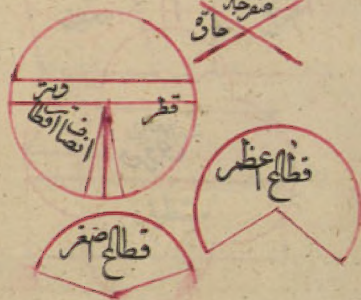 منفرجة
حادّة
وتر
قطر
انصاف اقطار
قطاع اعظم
قطاع اصغر